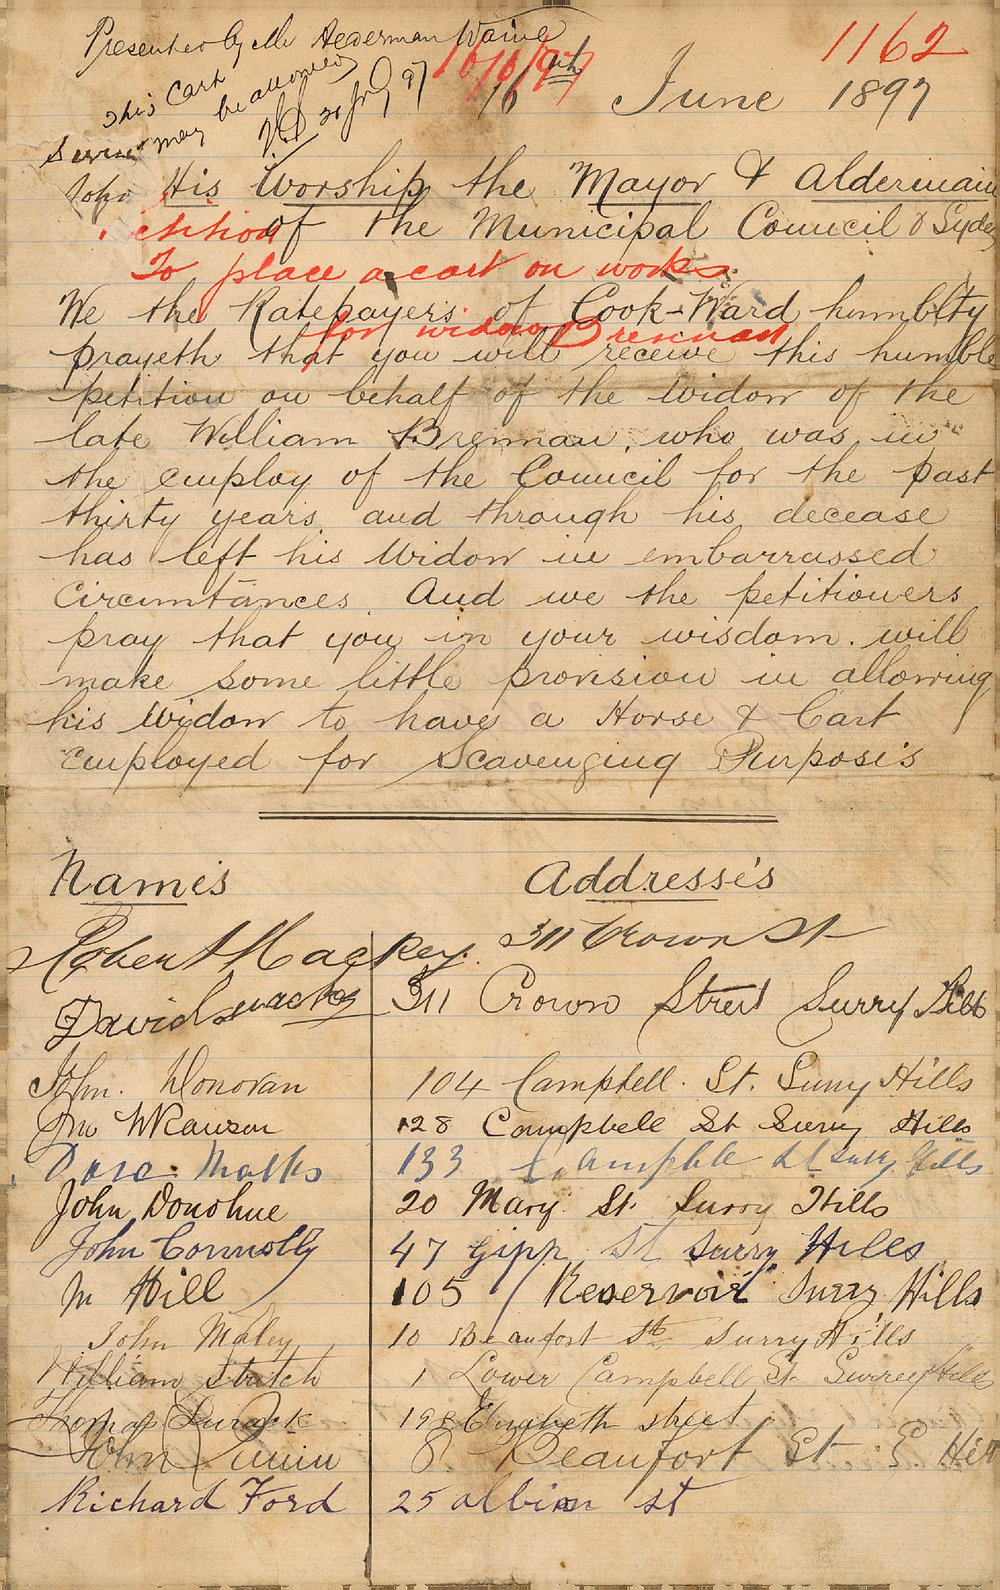 Presented by Mr Alderman Waine
1162
16/6/97
16th June 1897
This Cart
Service may be allowed
21 July 97
John
His Worship the Mayor & Aldermain
of the Municipal Council of Sydey
Petition
To place a cart on works
for widow Brennan
We the Ratepayers of Cook-Ward humblty
prayeth that you will receive this humble
petition on behalf of the Widow of the
late William Brennan, who was in
the employ of the Council for the past
thirty years, and through his decease
has left his Widow in embarrassed
Circumtances. And we the petitioners
pray that you in your wisdom. will
make some little provision in allowing
his Wydow to have a Horse & Cart
employed for Scavenging Purposi's
Namis Addressi's
Robert Mackey. 311 Crown St
David Mackey 311 Crown Street Surry Hills
John. Donovan 104 Campbell. St. Surry Hills
Jno W Rawson 128 Campbell St Surry Hills
133 Campble St Surry Hills
John Donohue 20 Mary St. Surry Hills
John Connolly 47 Gipp St Surry Hills
M Hill 105 Reservoir Surry Hills
John Maley 10 Beaufort St Surry Hills
William Stretch 1 Lower Campbell St. Surrey Hills
Thomas 198 Elizabeth street
John Quinn 8 Beaufort St. S. Hill
Richard Ford 25 albion st